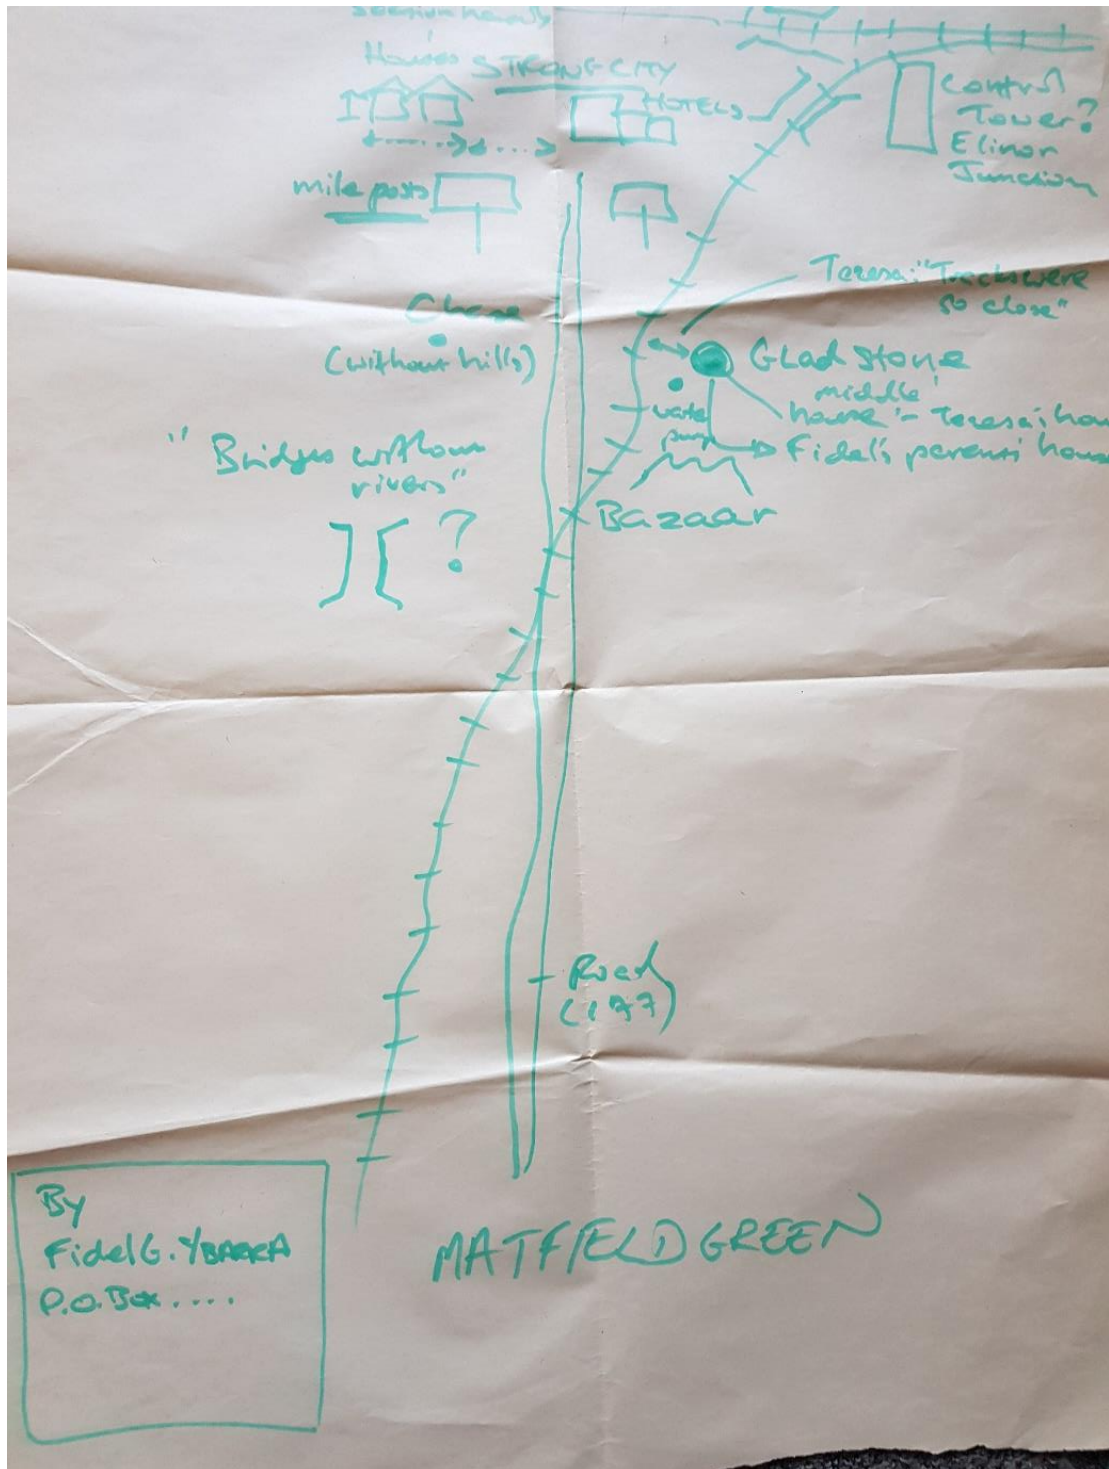 Houses
STRONG CITY
HOTELS
Control
Tower?
Elinor
Junction
mile posts
Teresa: "Tracks were
so close"
Chase
(without hills)
Gladstone
middle
house - Teresa's hou
water
pump
Fidel's parents' hous
"Bridges without
rivers"
?
Bazaar
Road
(177)
By
Fidel G. YBARRA
P.O. Box ....
MATFIELD GREEN